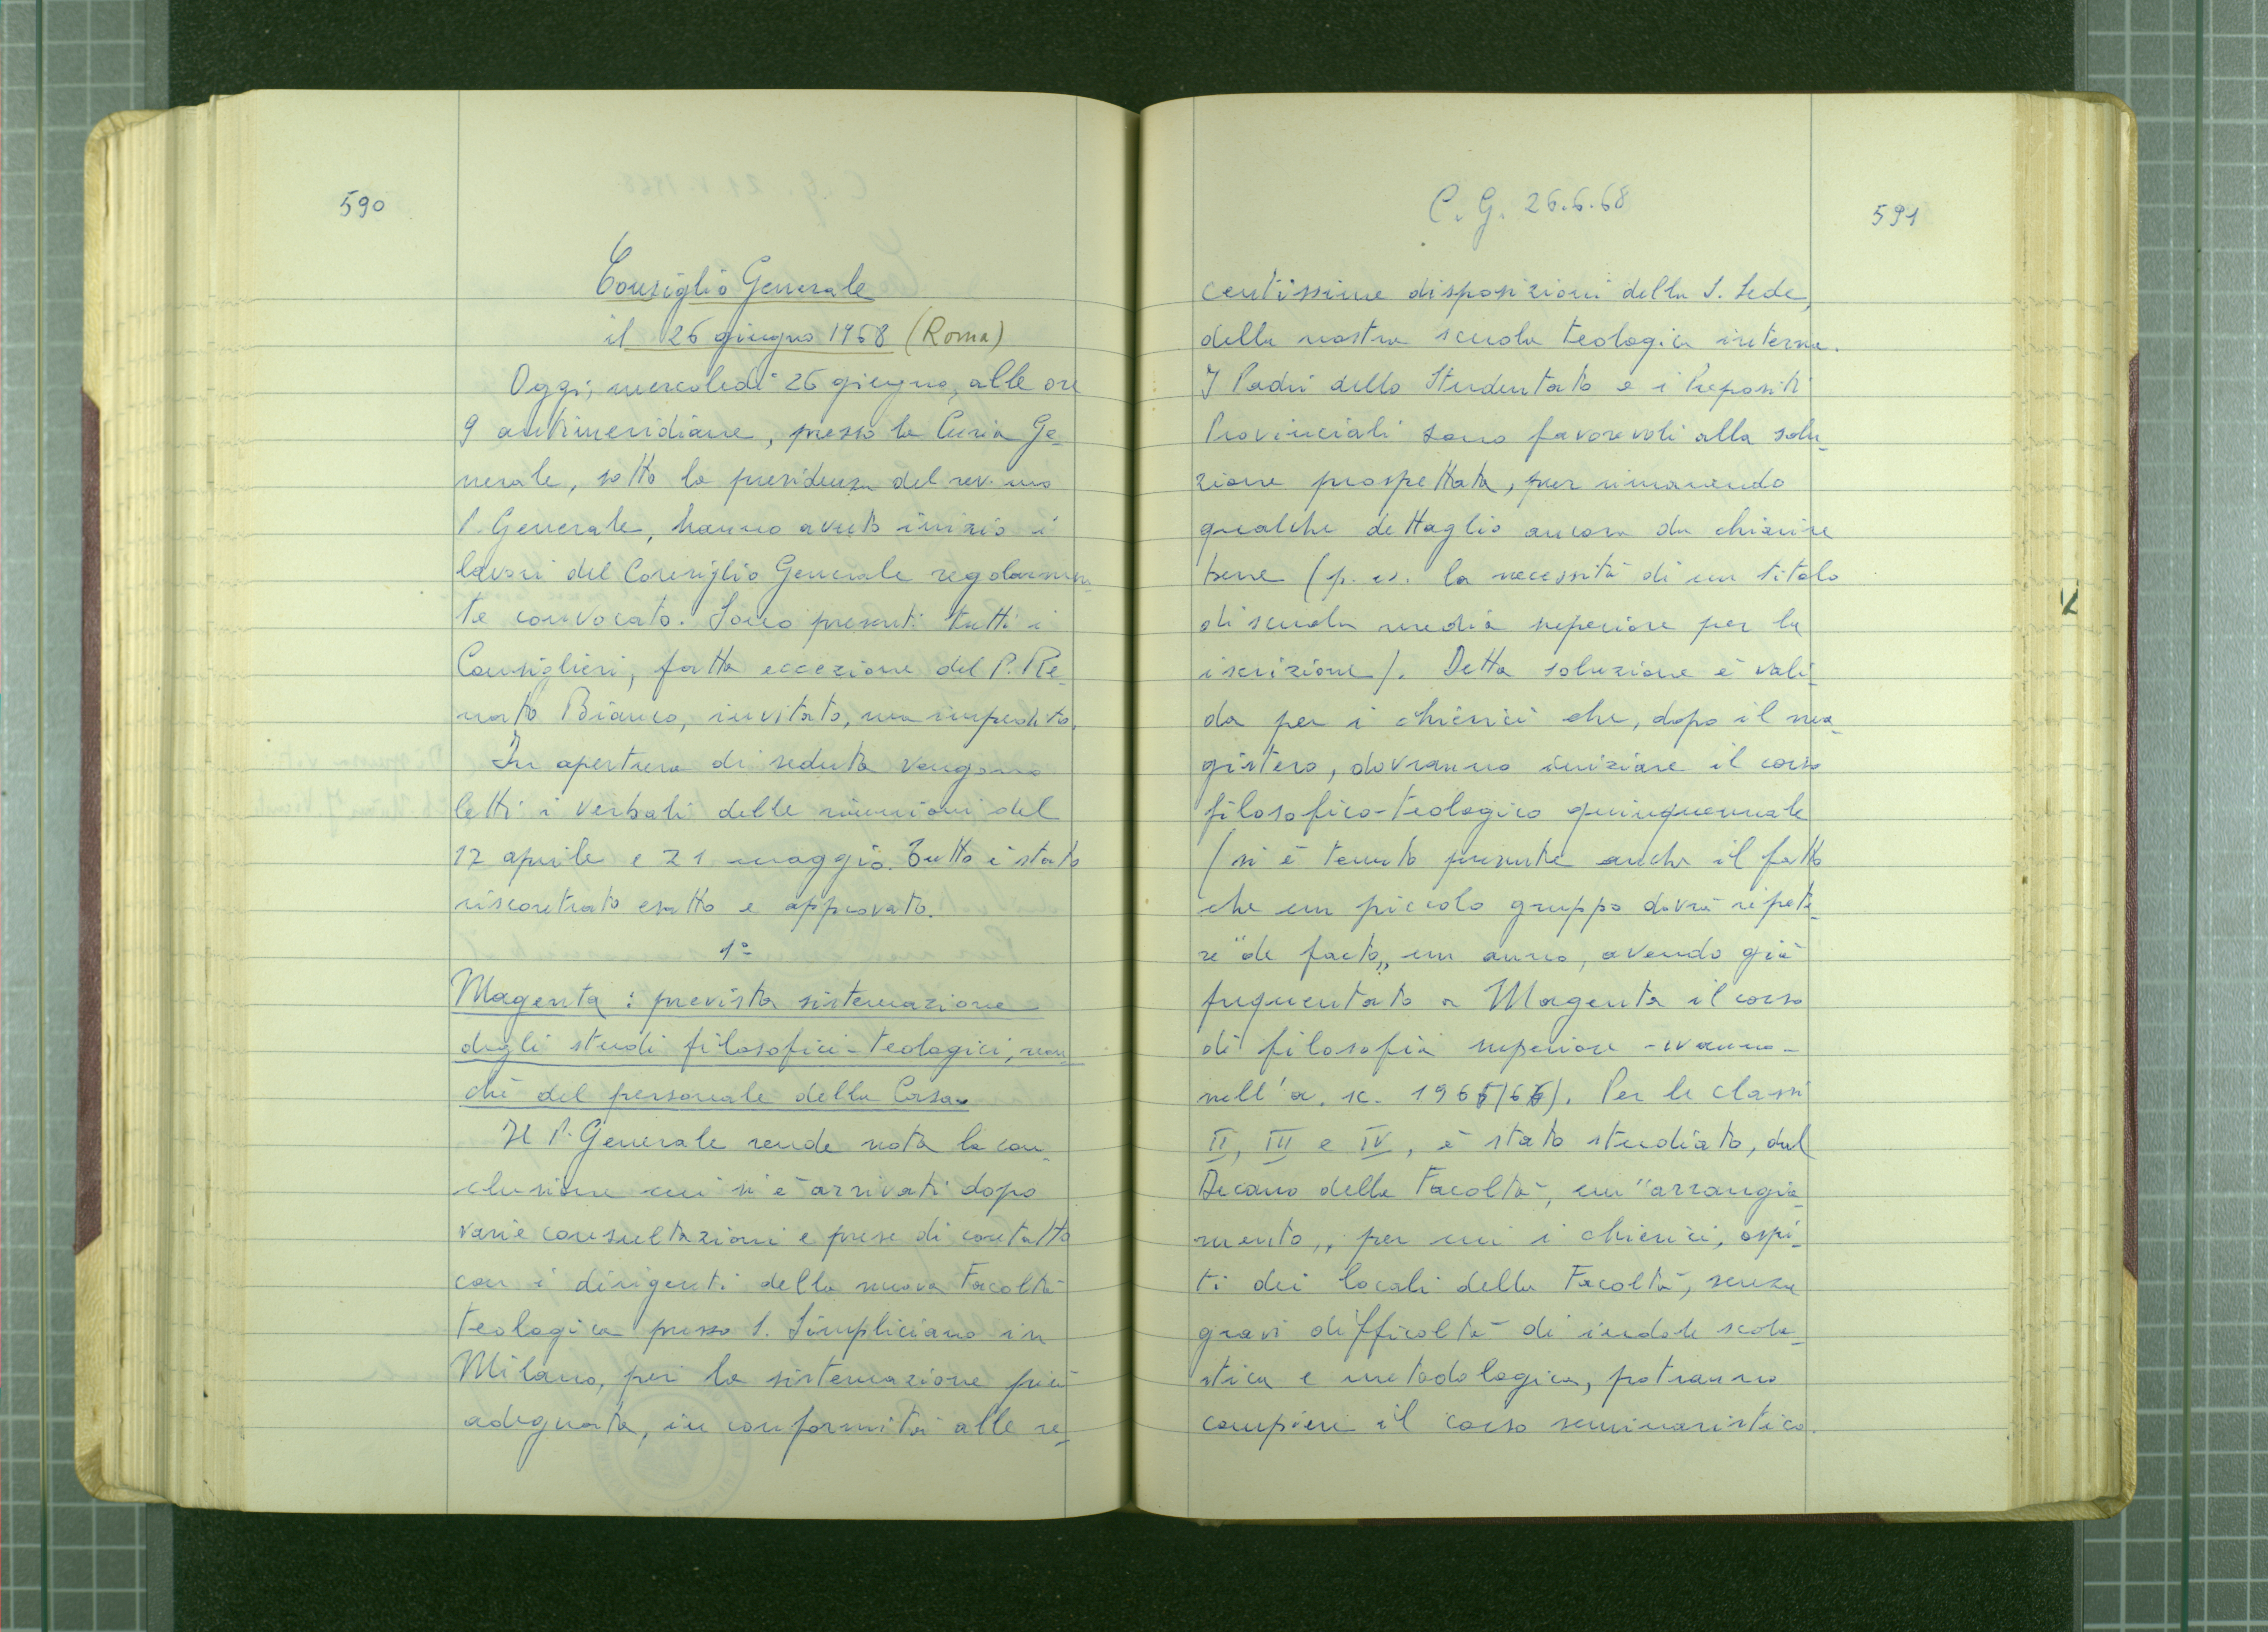 590
Consiglio Generale
il 26 giugno 1968 (Roma)
Oggi, mercoledì 26 giugno, alle ore
9 antimeridiane, presso la Curia Ge-
nerale, sotto la presidenza del rev.mo
P. Generale, hanno avuto inizio i
lavori del Consiglio Generale regolarmen-
te convocato. Sono presenti tutti i
Consiglieri, fatta eccezione del P. Re-
nato Bianco, invitato, ma impedito.
In apertura di seduta vengono
letti i verbali delle riunioni del
17 aprile e 21 maggio. Tutto è stato
riscontrato esatto e approvato.
1°
Magenta: prevista sistemazione
degli studi filosofici-teologici, non-
chè del personale della Casa.
Il P. Generale rende nota la con-
clusione cui si è arrivati dopo
varie consultazioni e prese di contatto
con i dirigenti della nuova Facoltà
teologica presso S. Simpliciano in
Milano, per la sistemazione più
adeguata, in conformità alle re-
C. G. 26.6.68
591
centissime disposizioni della S. Sede,
della nostra scuola teologica interna.
I Padri dello Studentato e i Prepositi
Provinciali sono favorevoli alla solu-
zione prospettata, pur rimanendo
qualche dettaglio ancora da chiarire
bene (p. es. la necessità di un titolo
di scuola media superiore per la
iscrizione). Detta soluzione è vali-
da per i chierici che, dopo il ma-
gistero, dovranno iniziare il corso
filosofico-teologico quinquennale
(si è tenuto presente anche il fatto
che un piccolo gruppo dovrà ripete-
re "de facto" un anno, avendo già
frequentato a Magenta il corso
di filosofia superiore - IV anno -
nell'a. sc. 1965/66). Per le classi
II, III e IV, è stato studiato, dal
Decano della Facoltà, un "arrangia-
mento" per cui i chierici, ospi-
ti dei locali della Facoltà, senza
gravi difficoltà di indole scola-
stica e metodologica, potranno
compiere il corso seminaristico.